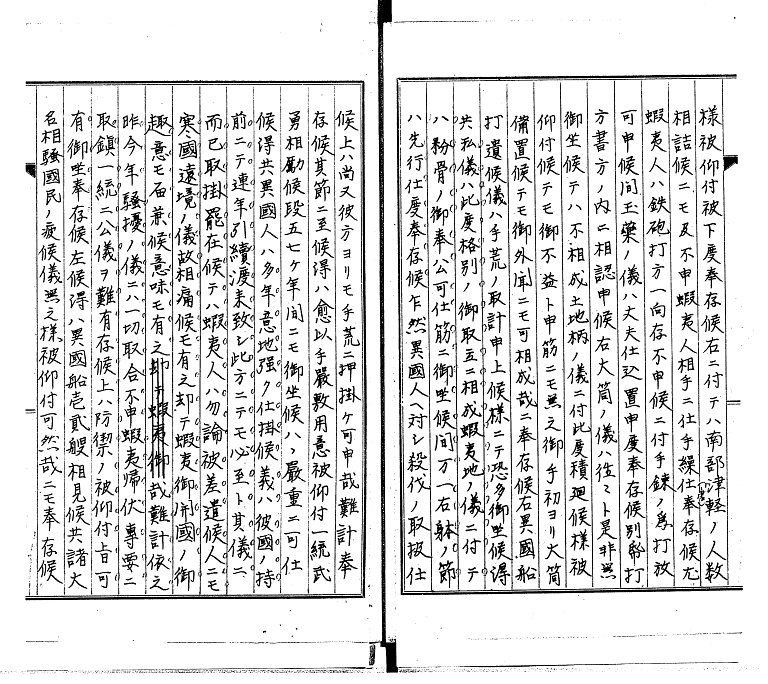 様被仰付被下度奉存候右ニ付テハ南部津軽ノ人数
相詰候ニモ及不申蝦夷人相手ニ仕手繰仕奉存候尤
蝦夷人ハ鉄砲打方一向存不申候ニ付手錬ノ為打放
可申候間玉薬ノ儀ハ丈夫仕込置申度奉存候別帋打
方書方ノ内ニ相認申候右大筒ノ儀ハ往々ト是非無
御坐候テハ不相成土地柄ノ儀ニ付此度積廻候様被
仰付候テモ御不益ト申筋ニモ無之御手初ヨリ大筒
備置候テモ御外聞ニモ可相成哉ニ奉存候右異國船
打遣候儀ハ手荒ノ取計申上候様ニテ恐多御坐候得
共私儀ハ此度格別ノ御取立ニ相成蝦夷地ノ儀ニ付テ
ハ粉骨ノ御奉公可仕筋ニ御坐候間万一右躰ノ節
ハ先行仕度奉存候乍然異國人ヘ対シ殺伐ノ取扱仕
候上ハ尚又彼方ヨリモ手荒ニ押掛ケ可申哉難計奉
存候其節ニ至候得ハ愈以手嚴敷用意被仰付一統武
勇相勵候段五七ケ年間ニモ御坐候ハヽ嚴重ニ可仕
候得共異國人ハ多年意地強ク仕掛候義ハ彼國ノ持
前ニテ連年引續渡来致シ此方ニテモ必至ト其儀ニ
而已取掛罷在候テハ蝦夷人ハ勿論被差遣候人ニモ
寒國遠境ノ儀故相痛候モ有之却テ蝦夷御開國ノ御
趣意モ石兼候意味モ有之却テ蝦夷御哉難計依之
昨今年騒擾ノ儀ニハ一切取合不申蝦夷帰伏専要ニ
取鎮一統ニ公儀ヲ難有存候上ハ防禦ノ被仰付旨可
有御坐奉存候左候得ハ異國船壱貮艘相見候共諸大
名相騒國民ノ疲候儀無之様被仰付可然哉ニモ奉存候